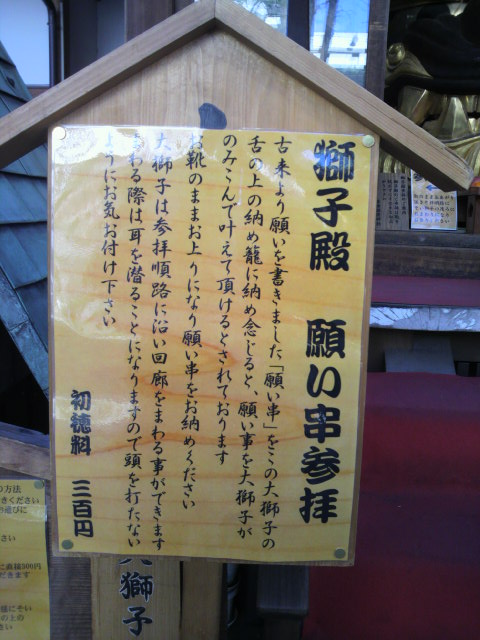 獅子殿 願い串参拝
古来より願いを書きました「願い串」をこの大獅子の
舌の上の納め籠に納め念じると、願い事を大獅子が
のみこんで叶えて頂けるとされております
お靴のままお上りになり願い串をお納めください
大獅子は参拝順路に沿い回廊をまわる事ができます
まわる際は耳を潜ることになりますので頭を打たない
ようにお気お付け下さい
初穂料 三百円
大獅子
の方法